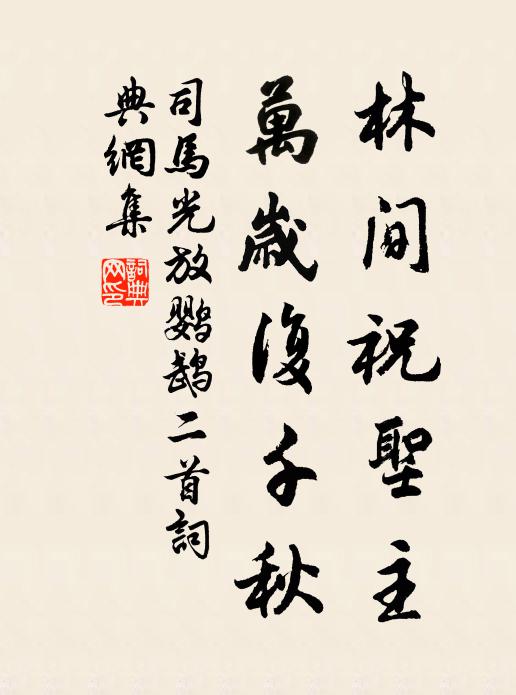 林間祝聖主
萬歲復千秋
司馬光放鸚鵡二首詞
典網集
詞典网印